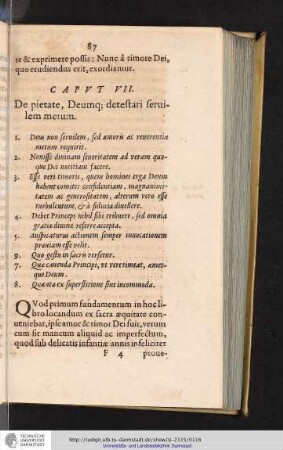 87
re & exprimere possis: Nunc à timore Dei,
quo erudiendus erit, exordiamur.
CAPVT VII.
De pietate, Deumq; detestari serui-
lem metum.
1. Deum non seruilem, sed amoris ac reuerentiæ
metum requirit.
2. Nonisse diuinam seueritatem ad veram quo-
que Dei notitiam facere.
3. Esse veri timoris, quem homines erga Deum
habent comites confidentiam, magnanimi-
tatem ac generositatem, alterum vero esse
turbulentum, & à fiducia diuellere.
4. Debet Princeps nihil sibi tribuere, sed omnia
gratiæ diuinæ referre accepta.
5. Auspicaturus actionem semper inuocationem
præuiam esse velit.
9. Quo gestu in sacris versetur.
7. Quæ cauenda Principi, vt vere timeat, amet-
que Deum.
8. Quæ ex superstitione sint incommoda.
QVod primum fundamentum in hoc li-
bro locandum ex sacra æquitate con-
ueniebat, ipse amor & timor Dei fuit, verum
cum sit mancum aliquid ac imperfectum,
quod sub delicatis infantiæ annis infeliciter
F 4 proue-
TECHNISCHE
UNIVERSITÄT
DARMSTADT
http://tudigit.ulb.tu-darmstadt.de/show/U-2115/0116
Universitäts- und Landesbibliothek Darmstadt